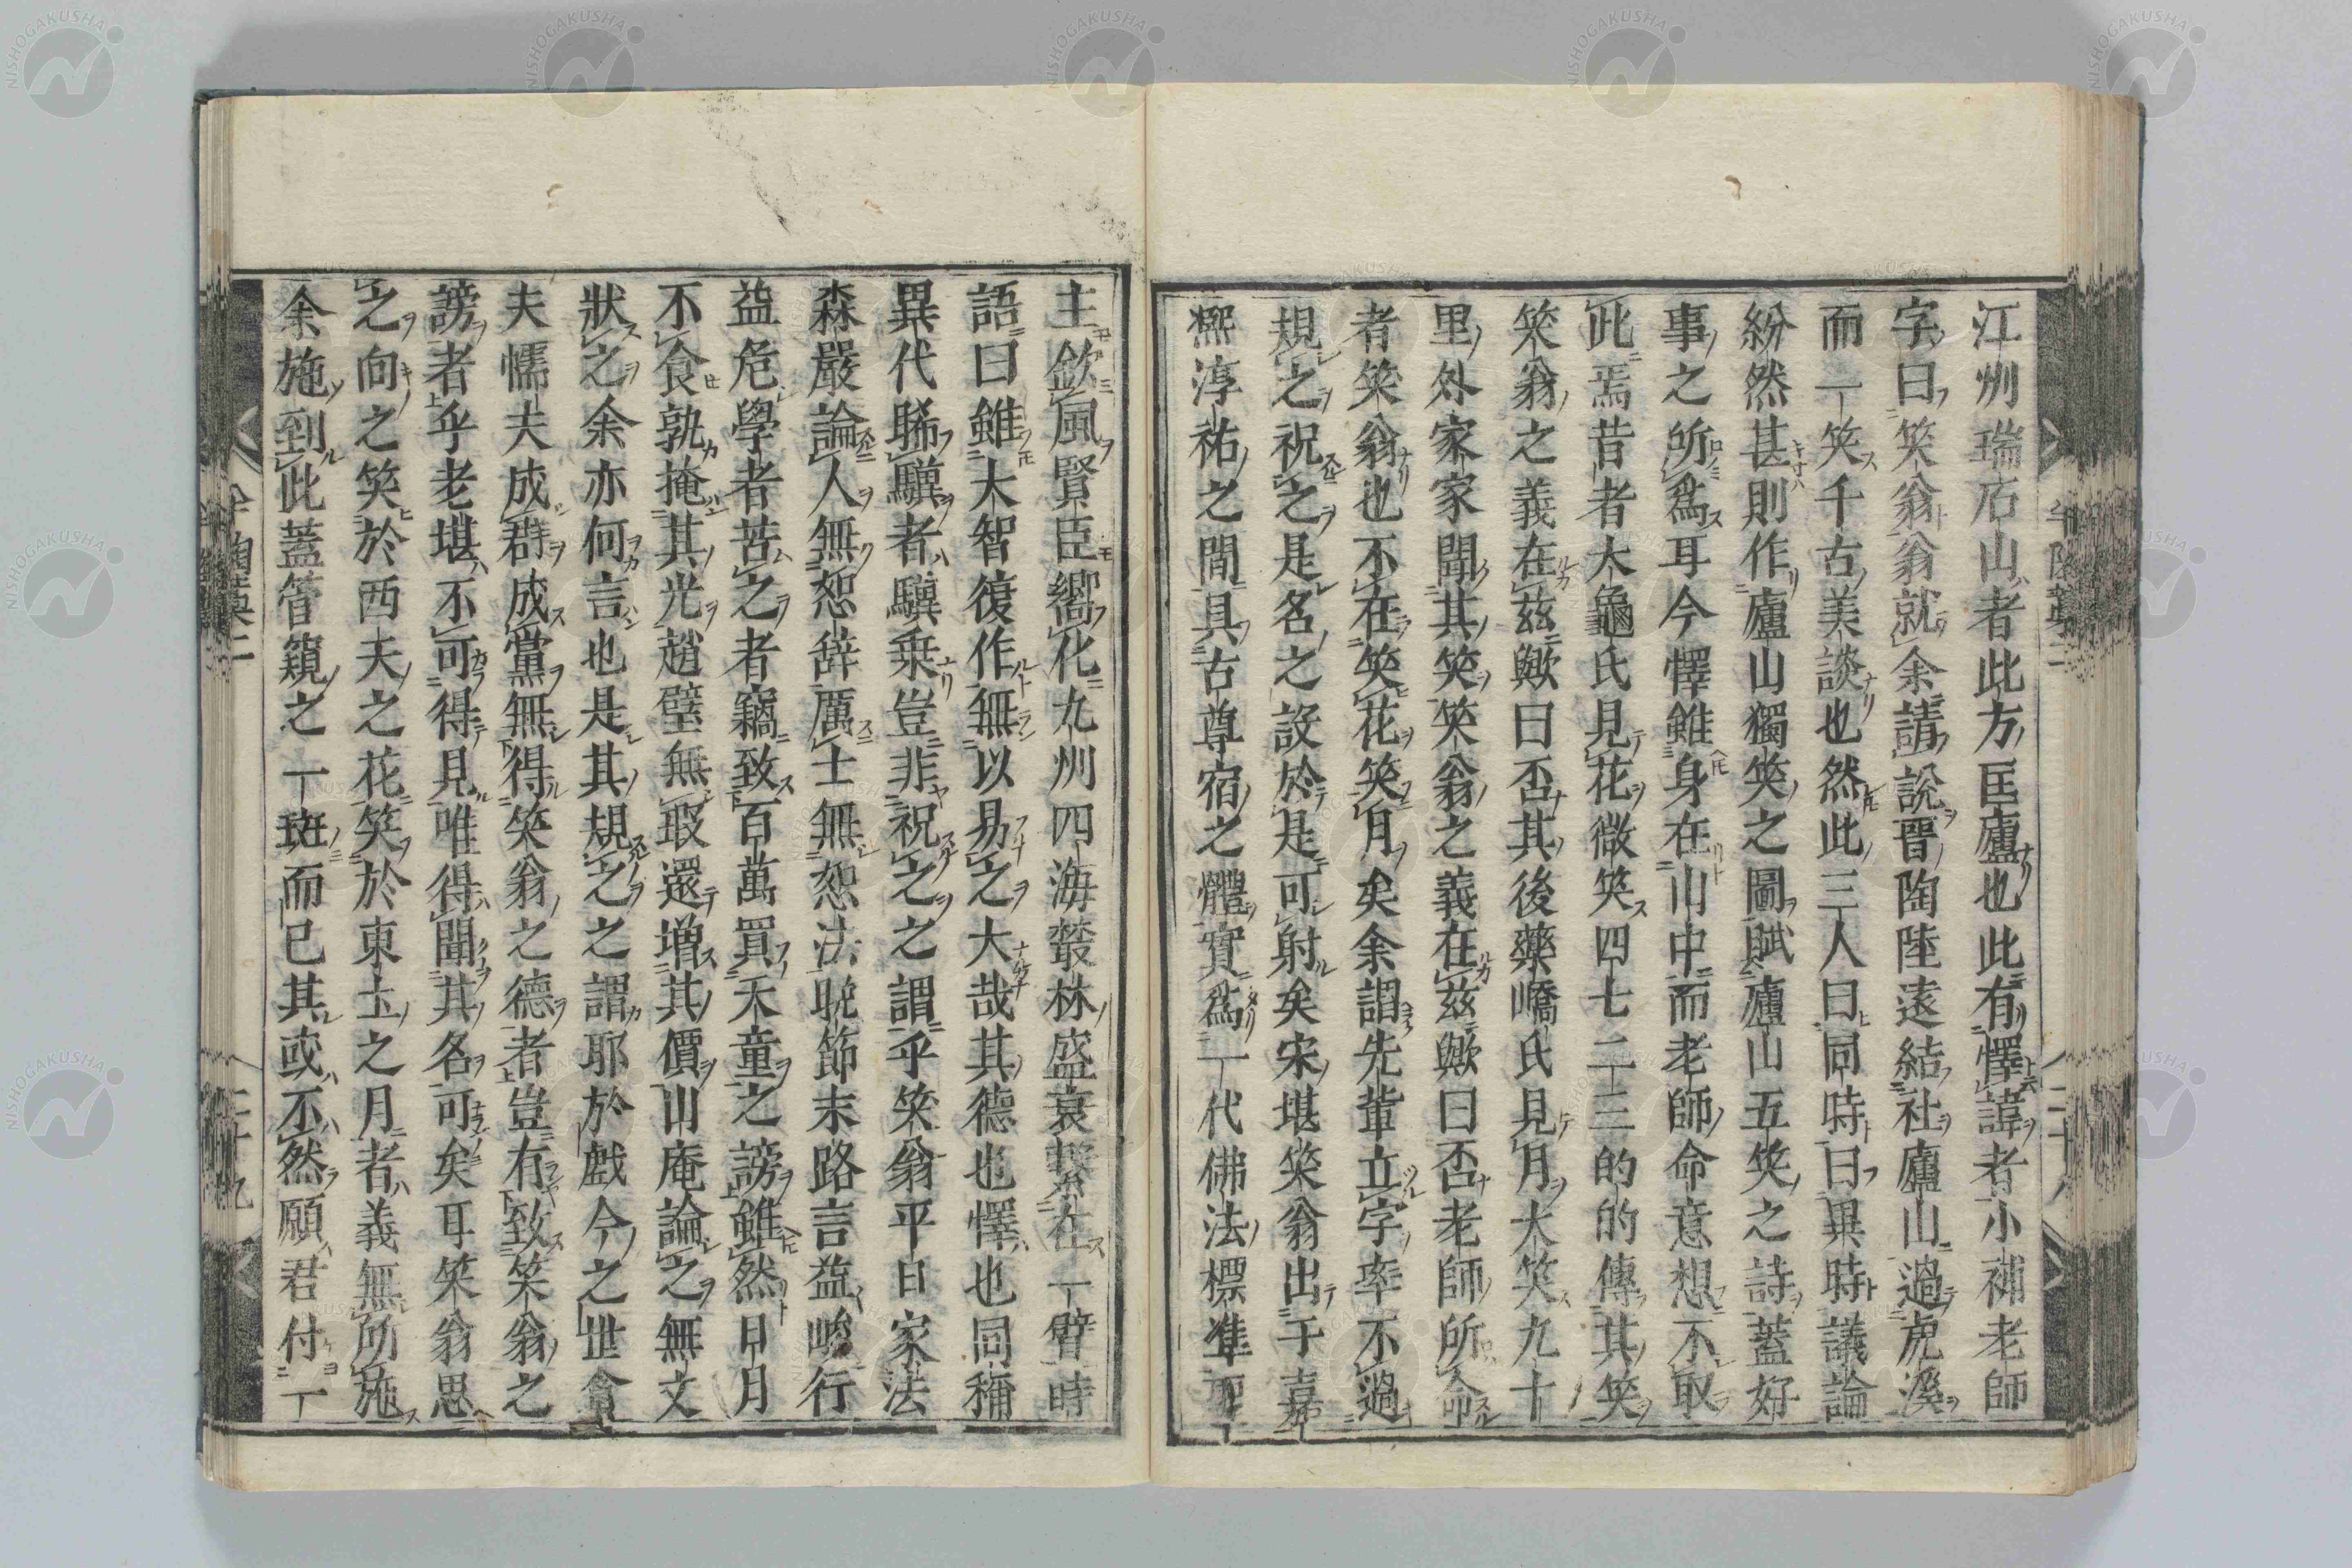 江州瑞石山者此方匡廬也此有懌諱者小補老師
字曰笑翁翁就余請説晉陶陸遠結社廬山過虎溪
而一笑千古美談也然此三人曰同時曰異時議論
紛然甚則作廬山獨笑之圖賦廬山五笑之詩蓋好
事之所爲耳今懌雖身在山中而老師命意想不取
此焉昔者大龜氏見花微笑四七二三的的傳其笑
笑翁之義在茲歟曰否其後藥嶠氏見月大笑九十
里外家家聞其笑笑翁之義在茲歟曰否老師所命
者笑翁也不在笑花笑月矣余謂先輩立字率不過
規之祝之是名之設於是可射矣宋堪笑翁出于嘉
熈淳祐之間具古尊宿之體實爲一代佛法標準
主歆風賢臣嚮化九州四海叢林盛衰繫在一臂時
語曰雖大智復作無以易之大哉其德也懌也同稱
異代睎驥者驥乗豈非祝之之謂乎笑翁平日家法
森嚴論人無恕辞厲士無恕法晩節末路言益峻行
益危學者苦之者竊致百萬買天童之謗雖然日月
不食孰掩其光趙璧無瑕還増其價山庵論之無文
狀之余亦何言也是其規之之謂耶於戯今之世貪
夫懦夫成群成黨無得笑翁之德者豈有致笑翁之
謗者乎老堪不可得見唯得聞其名可矣耳笑翁思
之向之笑於西夫之花笑於東土之月者義無所施
余施到此蓋管窺之一斑而已其或不然願君付一